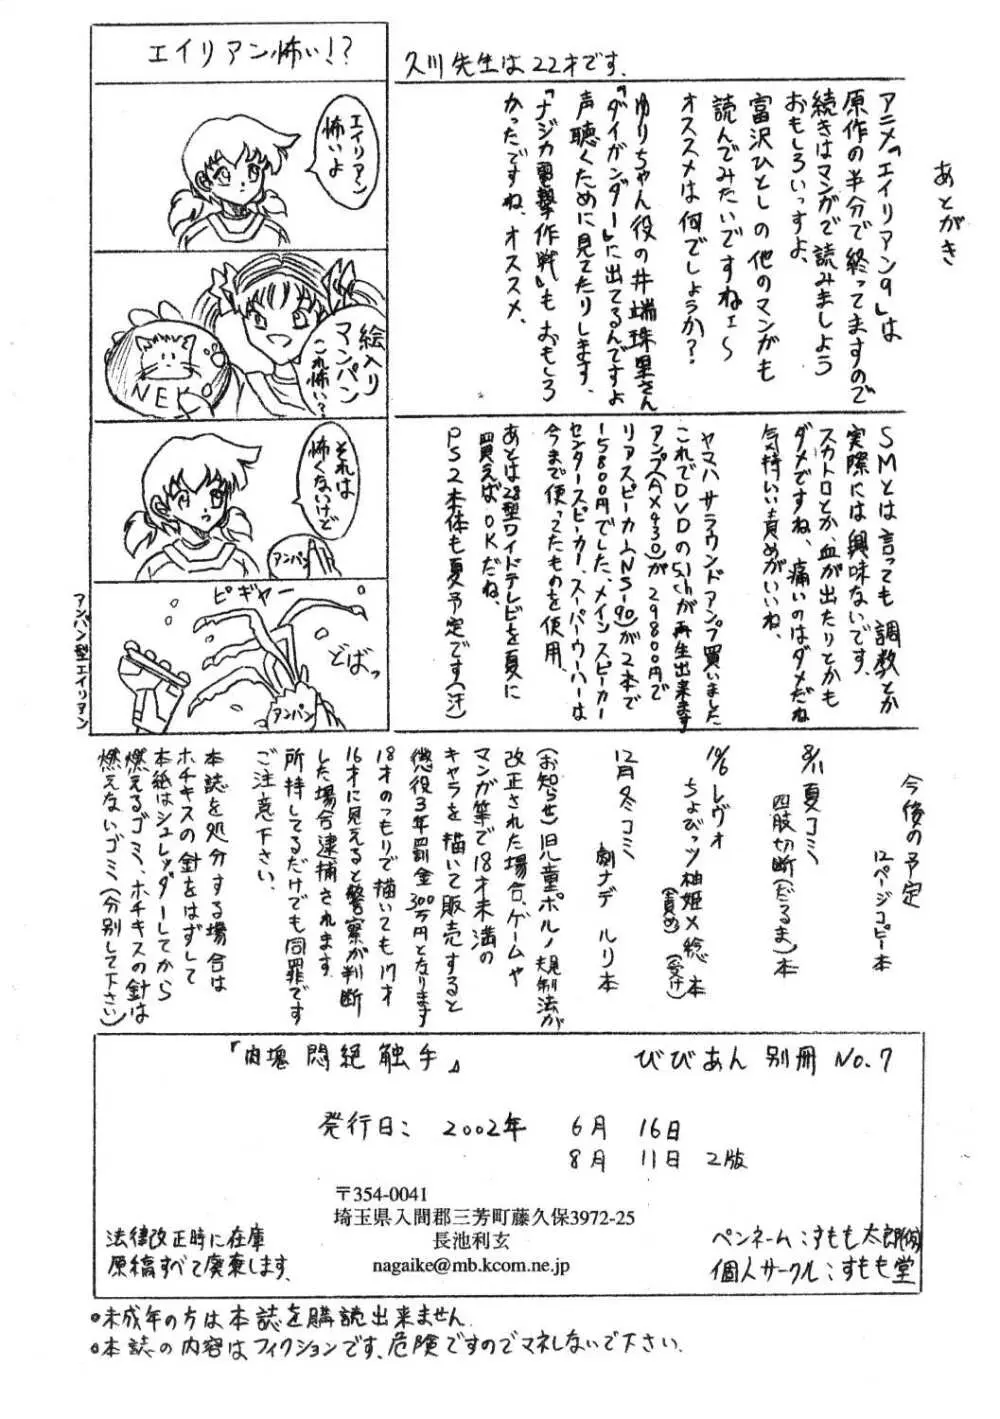 エイリアン怖い!?
エイリアン
怖いよ
絵入り
マンパン
これ怖い?
NEK
それは
怖くないけど
アンパン
ピギャー
どばっ
アンパン
アンパン型エイリアン
久川先生は22才です.
あとがき
アニメ『エイリアン9』は
原作の半分で終ってますので
続きはマンガで読みましょう
おもしろいっすよ、
富沢ひとしの他のマンガも
読んでみたいですねェ〜
オススメは何でしょうか?
ゆりちゃん役の井端珠里さん
『ダイガンダー』に出てるんですよ
声聴くために見てたりします、
『ナジカ電撃作戦』もおもしろ
かったですね、オススメ、
SMとは言っても調教とか
実際には興味ないです、
スカトロとか、血が出たりとかも
ダメですね、痛いのはダメだね
気持いい責めがいいね、
ヤマハサラウンドアンプ買いました
これでDVDの5.1chが再生出来ます
アンプ(AX930)が29800円で
リアスピーカー(NS-90)が2本で
15800円でした、メインスピーカー
センタースピーカー、スーパーウーハーは
今まで使ってたものを使用、
あとは28型ワイドテレビを夏に
買えばOKだね、
PS2本体も夏予定です(汗)
今後の予定
12ページコピー本
8/11夏コミ
四肢切断(だるま)本
10/6レヴォ
ちょびっツ柚姫×稔本
(責め)(受け)
12月冬コミ
劇ナデ ルリ本
(お知らせ)旧児童ポルノ規制法が
改正された場合、ゲームや
マンガ等で18才未満の
キャラを描いて販売すると
懲役3年罰金300万円となります
18才のつもりで描いても17才
16才に見えると警察が判断
した場合逮捕されます
所持してるだけでも同罪です
ご注意下さい.
本誌を処分する場合は
ホチキスの針をはずして
本紙はシュレッダーしてから
燃えるゴミ、ホチキスの針は
燃えないゴミ(分別して下さい)
『肉塊悶絶触手』 びびあん別冊No.7
発行日: 2002年 6月 16日
8月 11日 2版
〒354-0041
埼玉県入間郡三芳町藤久保3972-25
長池利玄
nagaike@mb.kcom.ne.jp
法律改正時に在庫
原稿すべて廃棄します.
ペンネーム:すもも太郎(仮)
個人サークル:すもも堂
・未成年の方は本誌を購読出来ません.
・本誌の内容はフィクションです、危険ですのでマネしないで下さい.